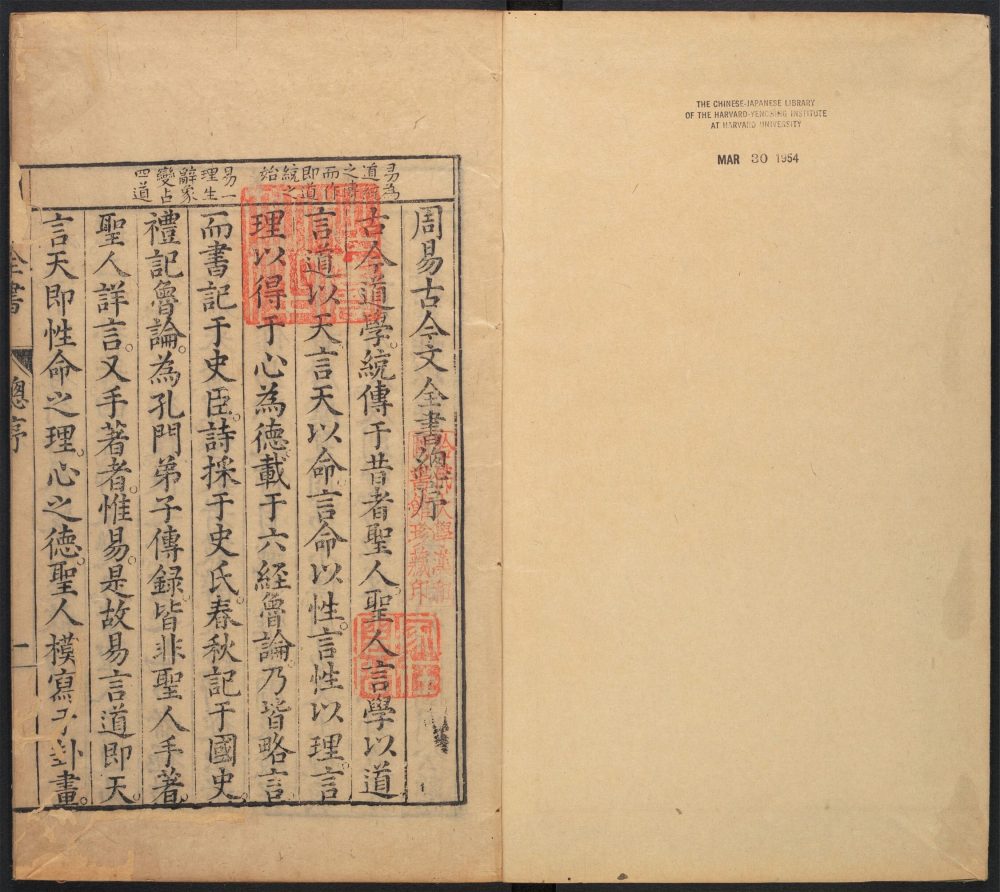 THE CHINESE-JAPANESE LIBRARY
OF THE HARVARD-YENCHING INSTITUTE
AT HARVARD UNIVERSITY
MAR 30 1954
易為
道統
之傳
而作
即道
統之
始
易一
理生
辭象
變占
四道
周易古今文全書總序
古今道學統傳于昔者聖人。聖人言學以道
言道以天言天以命。言命以性。言性以理。言
理以得于心為德載于六經魯論。乃皆略言
而書記于史臣。詩採于史氏。春秋記于國史。
禮記魯論。為孔門弟子傳録。皆非聖人手著。
聖人詳言。又手著者。惟易。是故易言道即天。
言天即性命之理。心之德。聖人模寫于卦畫。
全書
總序
一